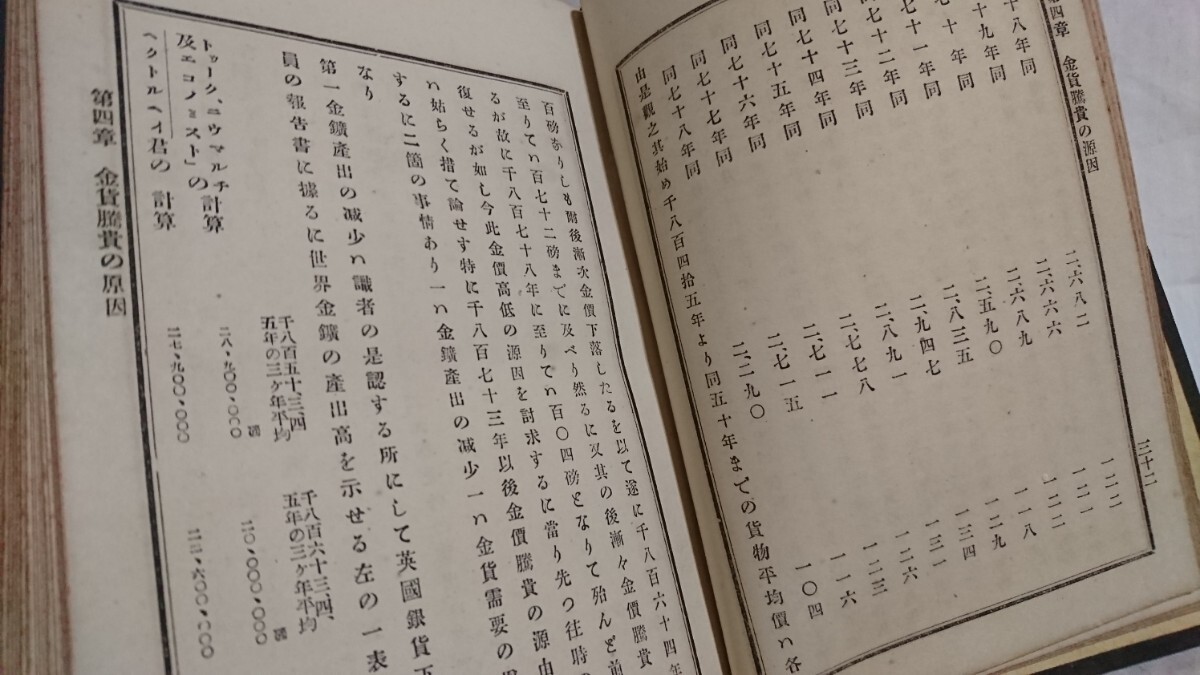 四章　金貨騰貴の源因
三十二
十八年同　二、六八二　一二二
十九年同　二、六六六　一二一
七十年同　二、六八九　一二二
七十一年同　二、五九〇　一一八
七十二年同　二、八三五　一二九
七十三年同　二、九四七　一三四
同七十四年同　二、八九一　一三一
同七十五年同　二、七七八　一二六
同七十六年同　二、七一一　一二三
同七十七年同　二、七一五　一一六
同七十八年同　二、二九〇　一〇四
由是觀之其始め千八百四拾五年より同五十年までの貨物平均價ハ各
百磅なりしも爾後漸次金價下落したるを以て遂に千八百六十四年
至りてハ百七十二磅までに及べり然るに又其の後漸々金價騰貴
るが故に千八百七十八年に至りてハ百〇四磅となりて殆んど前
復せるが如し今此金價高低の源因を討求するに當り先つ往時の
ハ姑らく措て論せす特に千八百七十三年以後金價騰貴の源由
するに二箇の事情あり一ハ金鑛產出の减少一ハ金貨需要の
なり
第一金鑛產出の减少ハ識者の是認する所にして英國銀貨下
員の報告書に據るに世界金鑛の產出高を示せる左の一表
千八百五十、三、四　千八百六十三、四、
五年の三ヶ年平均　五年の三ヶ年平均
トゥーク、ニウマルチ計算　磅　磅
及エコノミスト」の計算　二八、九〇〇、〇〇〇　二〇、〇〇〇、〇〇〇
ヘクトルヘイ君の計算　二七、九〇〇、〇〇〇　二二、六〇〇、〇〇〇
第四章　金貨騰貴の原因